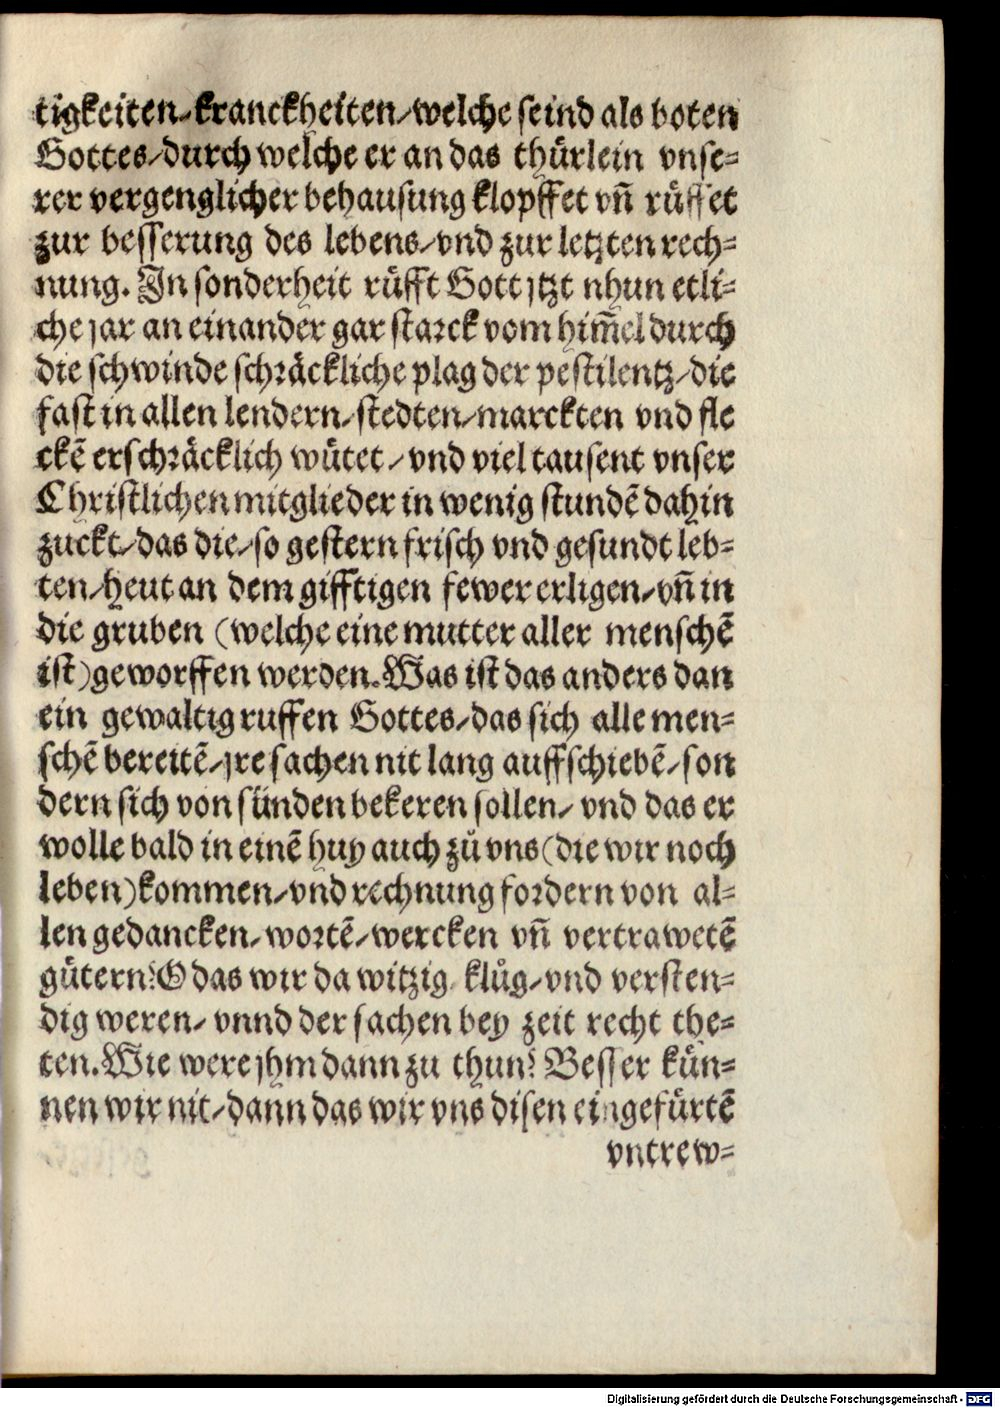 tigkeiten/kranckheiten/welche seind als boten
Gottes/durch welche er an das thürlein vnse=
rer vergenglicher behausung klopffet vñ rüffet
zur besserung des lebens/vnd zur letzten rech=
nung. In sonderheit rüfft Gott jtzt nhun etli=
che jar an einander gar starck vom him̃el durch
die schwinde schräckliche plag der pestilentz/die
fast in allen lendern/stedten/marckten vnd fle
ckẽ erschräcklich wütet/vnd viel tausent vnser
Christlichen mitglieder in wenig stundẽ dahin
zuckt/das die/so gestern frisch vnd gesundt leb=
ten/heut an dem gifftigen fewer erligen/vñ in
die gruben (welche eine mutter aller menschẽ
ist)geworffen werden. Was ist das anders dan
ein gewaltig ruffen Gottes/das sich alle men=
schẽ bereitẽ/jre sachen nit lang auffschiebẽ/son
dern sich von sünden bekeren sollen/ vnd das er
wolle bald in einẽ huy auch zů vns(die wir noch
leben)kommen/vnd rechnung fordern von al=
len gedancken/wortẽ/wercken vñ vertrawetẽ
gütern? O das wir da witzig/ klůg/vnd versten=
dig weren/ vnnd der sachen bey zeit recht the=
ten. Wie were jhm dann zu thun? Besser kün=
nen wir nit/dann das wir vns disen eingefürtẽ
vntrew=
Digitalisierung gefördert durch die Deutsche Forschungsgemeinschaft - DFG